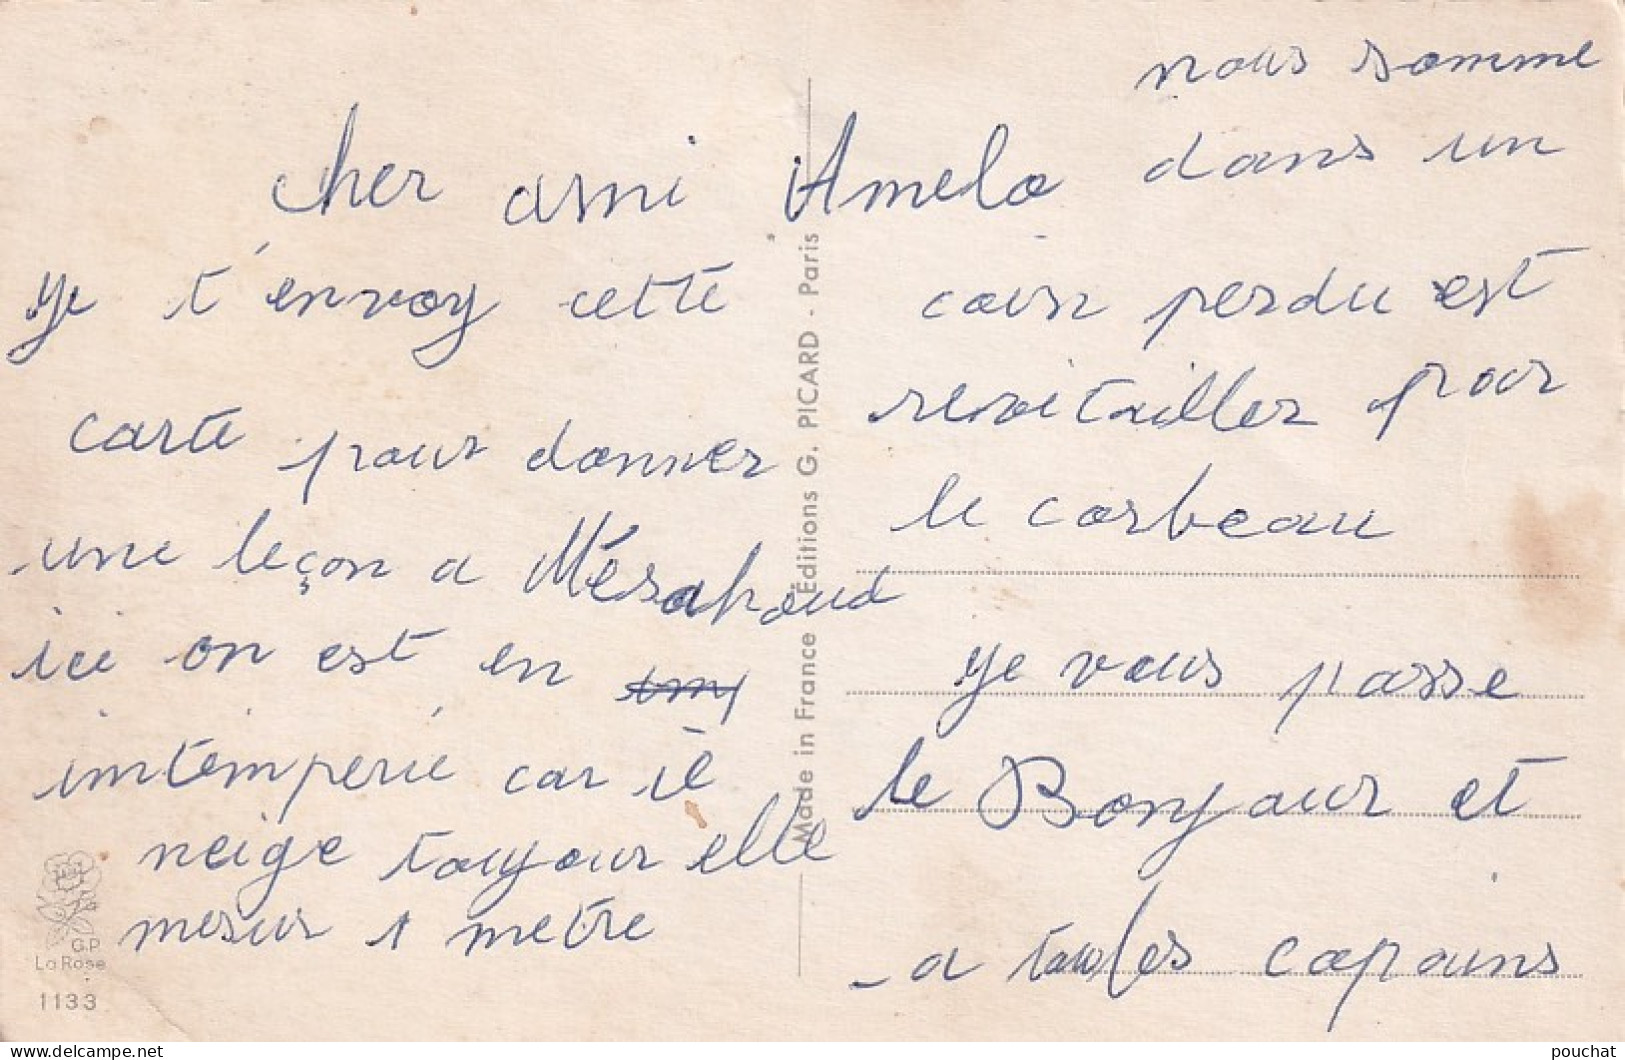 cher ami Amelo
je t'envoy cette
carte pour donner
une leçon a Mésahoud
ici on est en
intemperie car il
neige toujour elle
mesur 1 metre
nous somme
dans un
coin perdu est
revitailler par
le corbeau
je vous passe
le Bonjour et
a tous les copains
Made in France Éditions G. PICARD - Paris
G.P.
La Rose
1133
pouchat